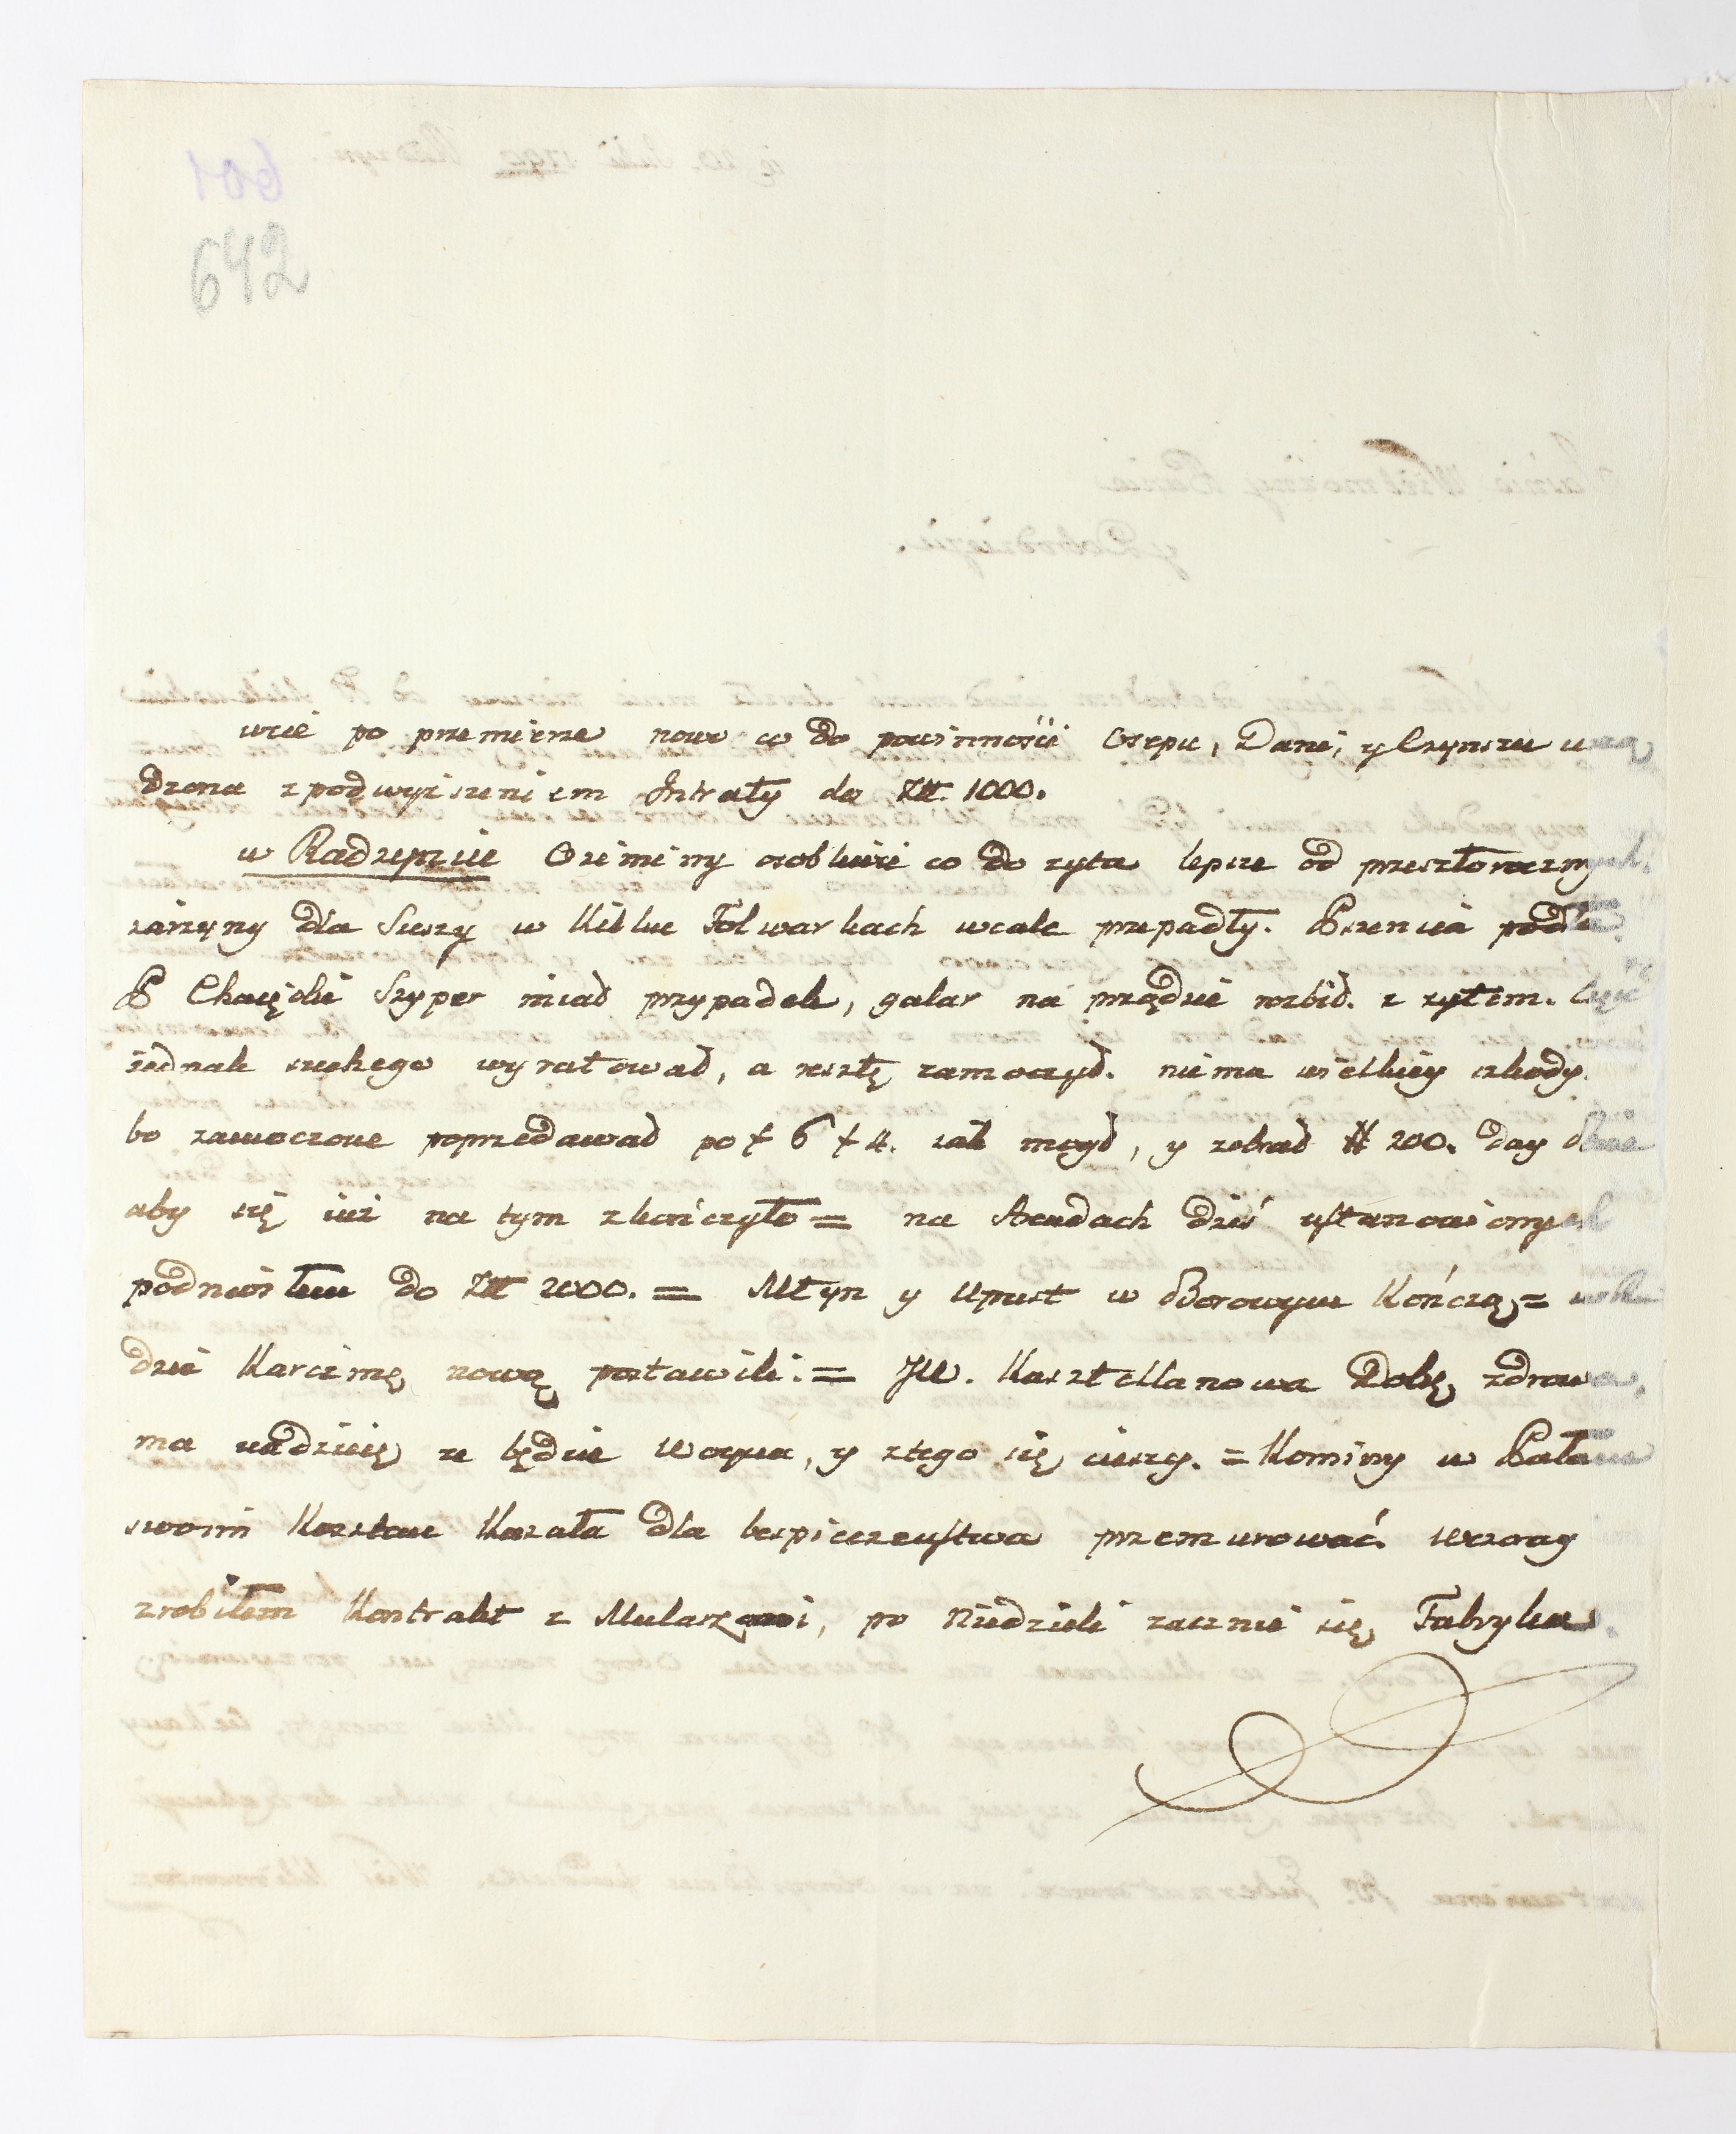 642
wie po przemierze nowo co do powinności Osepu, Dani, y Czynszu urzą
dzona z podwyższeniem Intraty do Złt. 1000.
w Radzyminie Oziminy osobliwie co do żyta lepsze od przeszłorocznych.
iarzyny dla Suszy w Kilku Folwarkach wcale przepadły.
P Szyper miał przypadek, galar na prądzie rozbił. z żytem. Część
iednak suchego wyratował, a resztę zamoczył. niema wielkiey szkody.
bo zamoczone poprzedawał po 6 4. iak mógł, y zebrał # 200. day Boże
aby się iuż na tym zkończyło = na Arendach dziś ustanowionych
podniosłem do Złt 2000. = Młyn y Upust w Borowym Kończą =
dzie Karczmę nową postawili. = JW. Kasztellanowa Dobę zdrowa,
ma nadzieię że będzie Woyna, y z tego się cieszy. = Kominy w Pałacu
swoim Kosztem Kazała dla bespieczeństwa przemurować. Wczoray
zrobiłem Kontrakt z Mularzami, po Niedzieli zacznie się Fabryka.